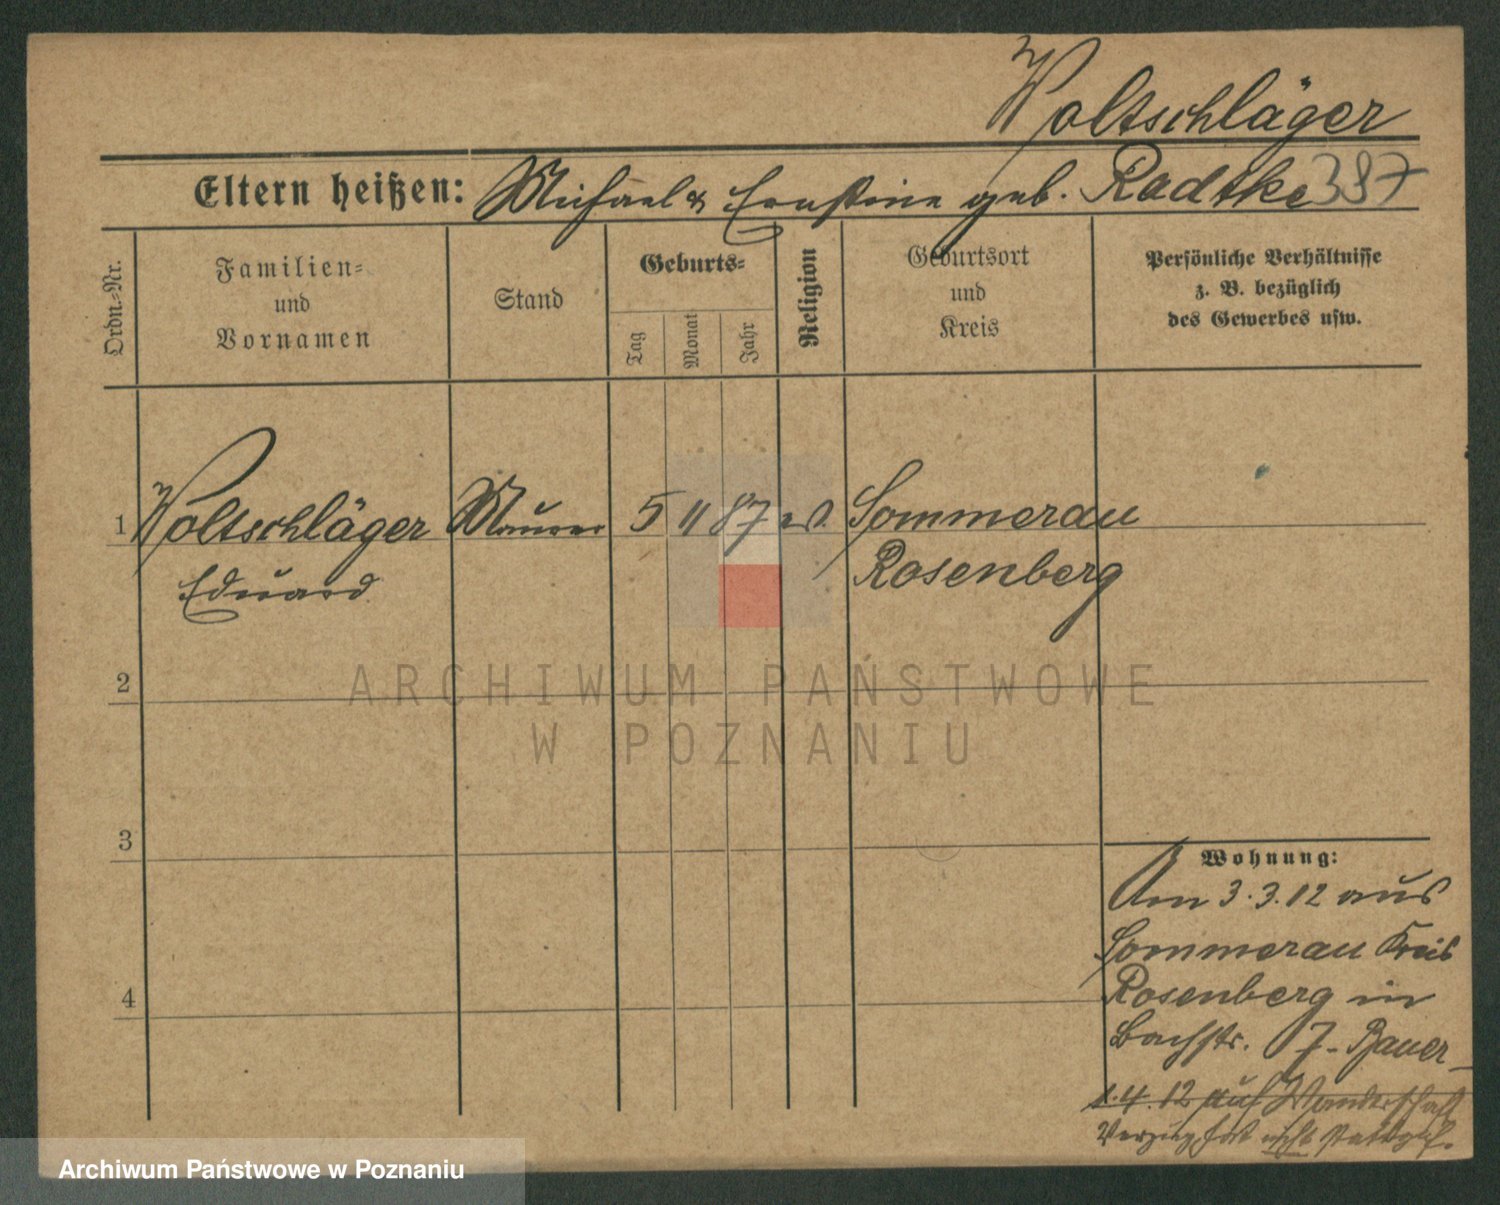 Woltschläger
Eltern heißen: Michael & Ernstine geb. Radtke 387
Ordn.-Nr.
Familien-
und
Vornamen
Stand
Geburts-
Tag
Monat
Jahr
Religion
Geburtsort
und
Kreis
Persönliche Verhältnisse
z. B. bezüglich
des Gewerbes usw.
1 Woltschläger Maurer 5 11 87 ev. Sommerau
Eduard Rosenberg
2
3
4
Wohnung:
Am 3.3.12 aus
Sommerau Kreis
Rosenberg in
Bachstr. 7 - Bauer
1.4.12 auf Wanderschaft
Verzug hat nicht stattgef.
ARCHIWUM PAŃSTWOWE
W POZNANIU
Archiwum Państwowe w Poznaniu